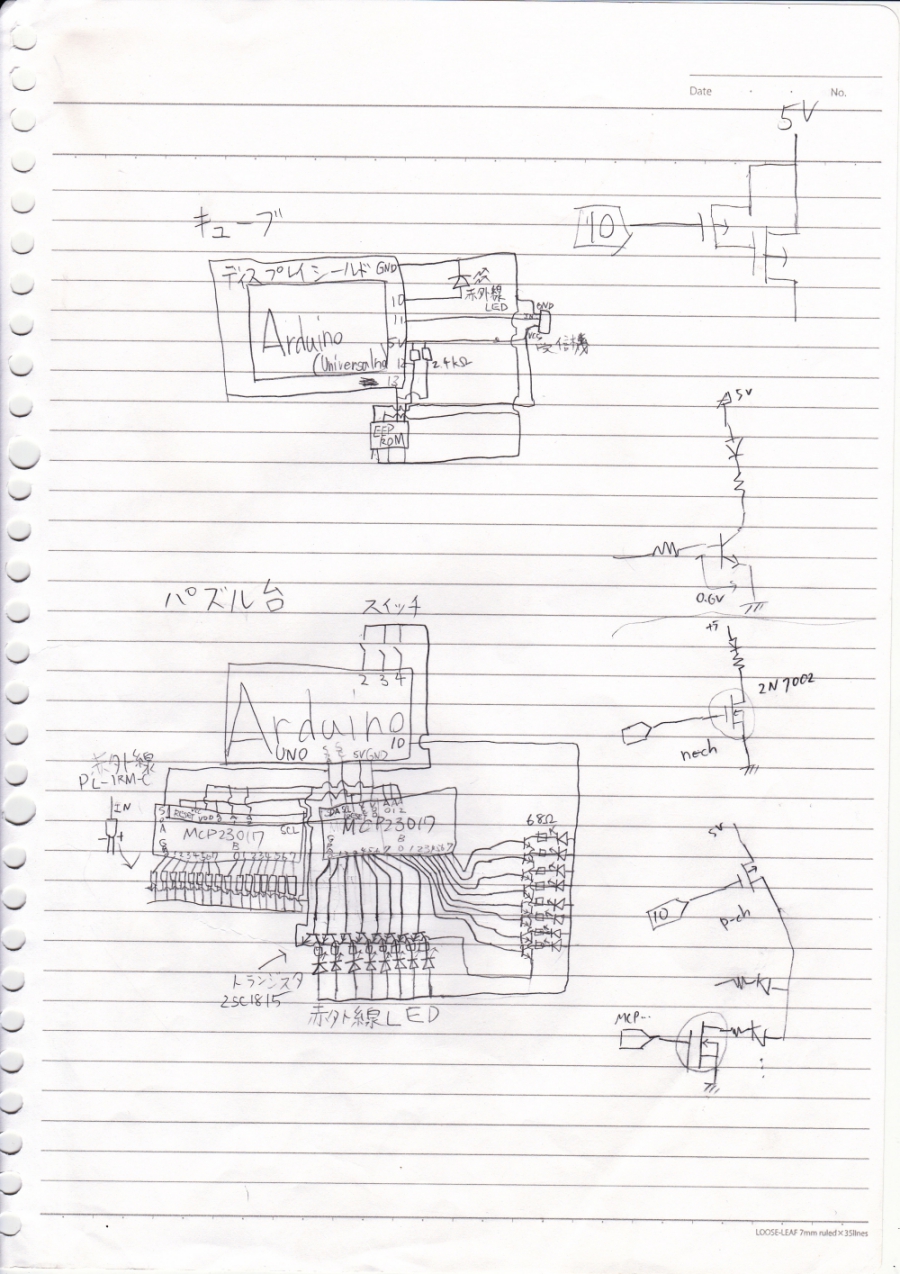 Date . . No.
5V
キューブ
10
ディスプレイシールド GND
10
赤外線
LED
11
GND
Arduino
5V
受信機
(Universal
12
2.4kΩ
13
EEP
ROM
5V
0.6V
パズル台
スイッチ
2 3 4
+5
2N7002
Arduino
UNO
10
5V GND
n-ch
赤外線
PL-IRM-C
IN
SCL
MCP23017
MCP23017
68Ω
5V
10
p-ch
トランジスタ
2SC1815
赤外線LED
MCP...
LOOSE-LEAF 7mm ruled×35lines